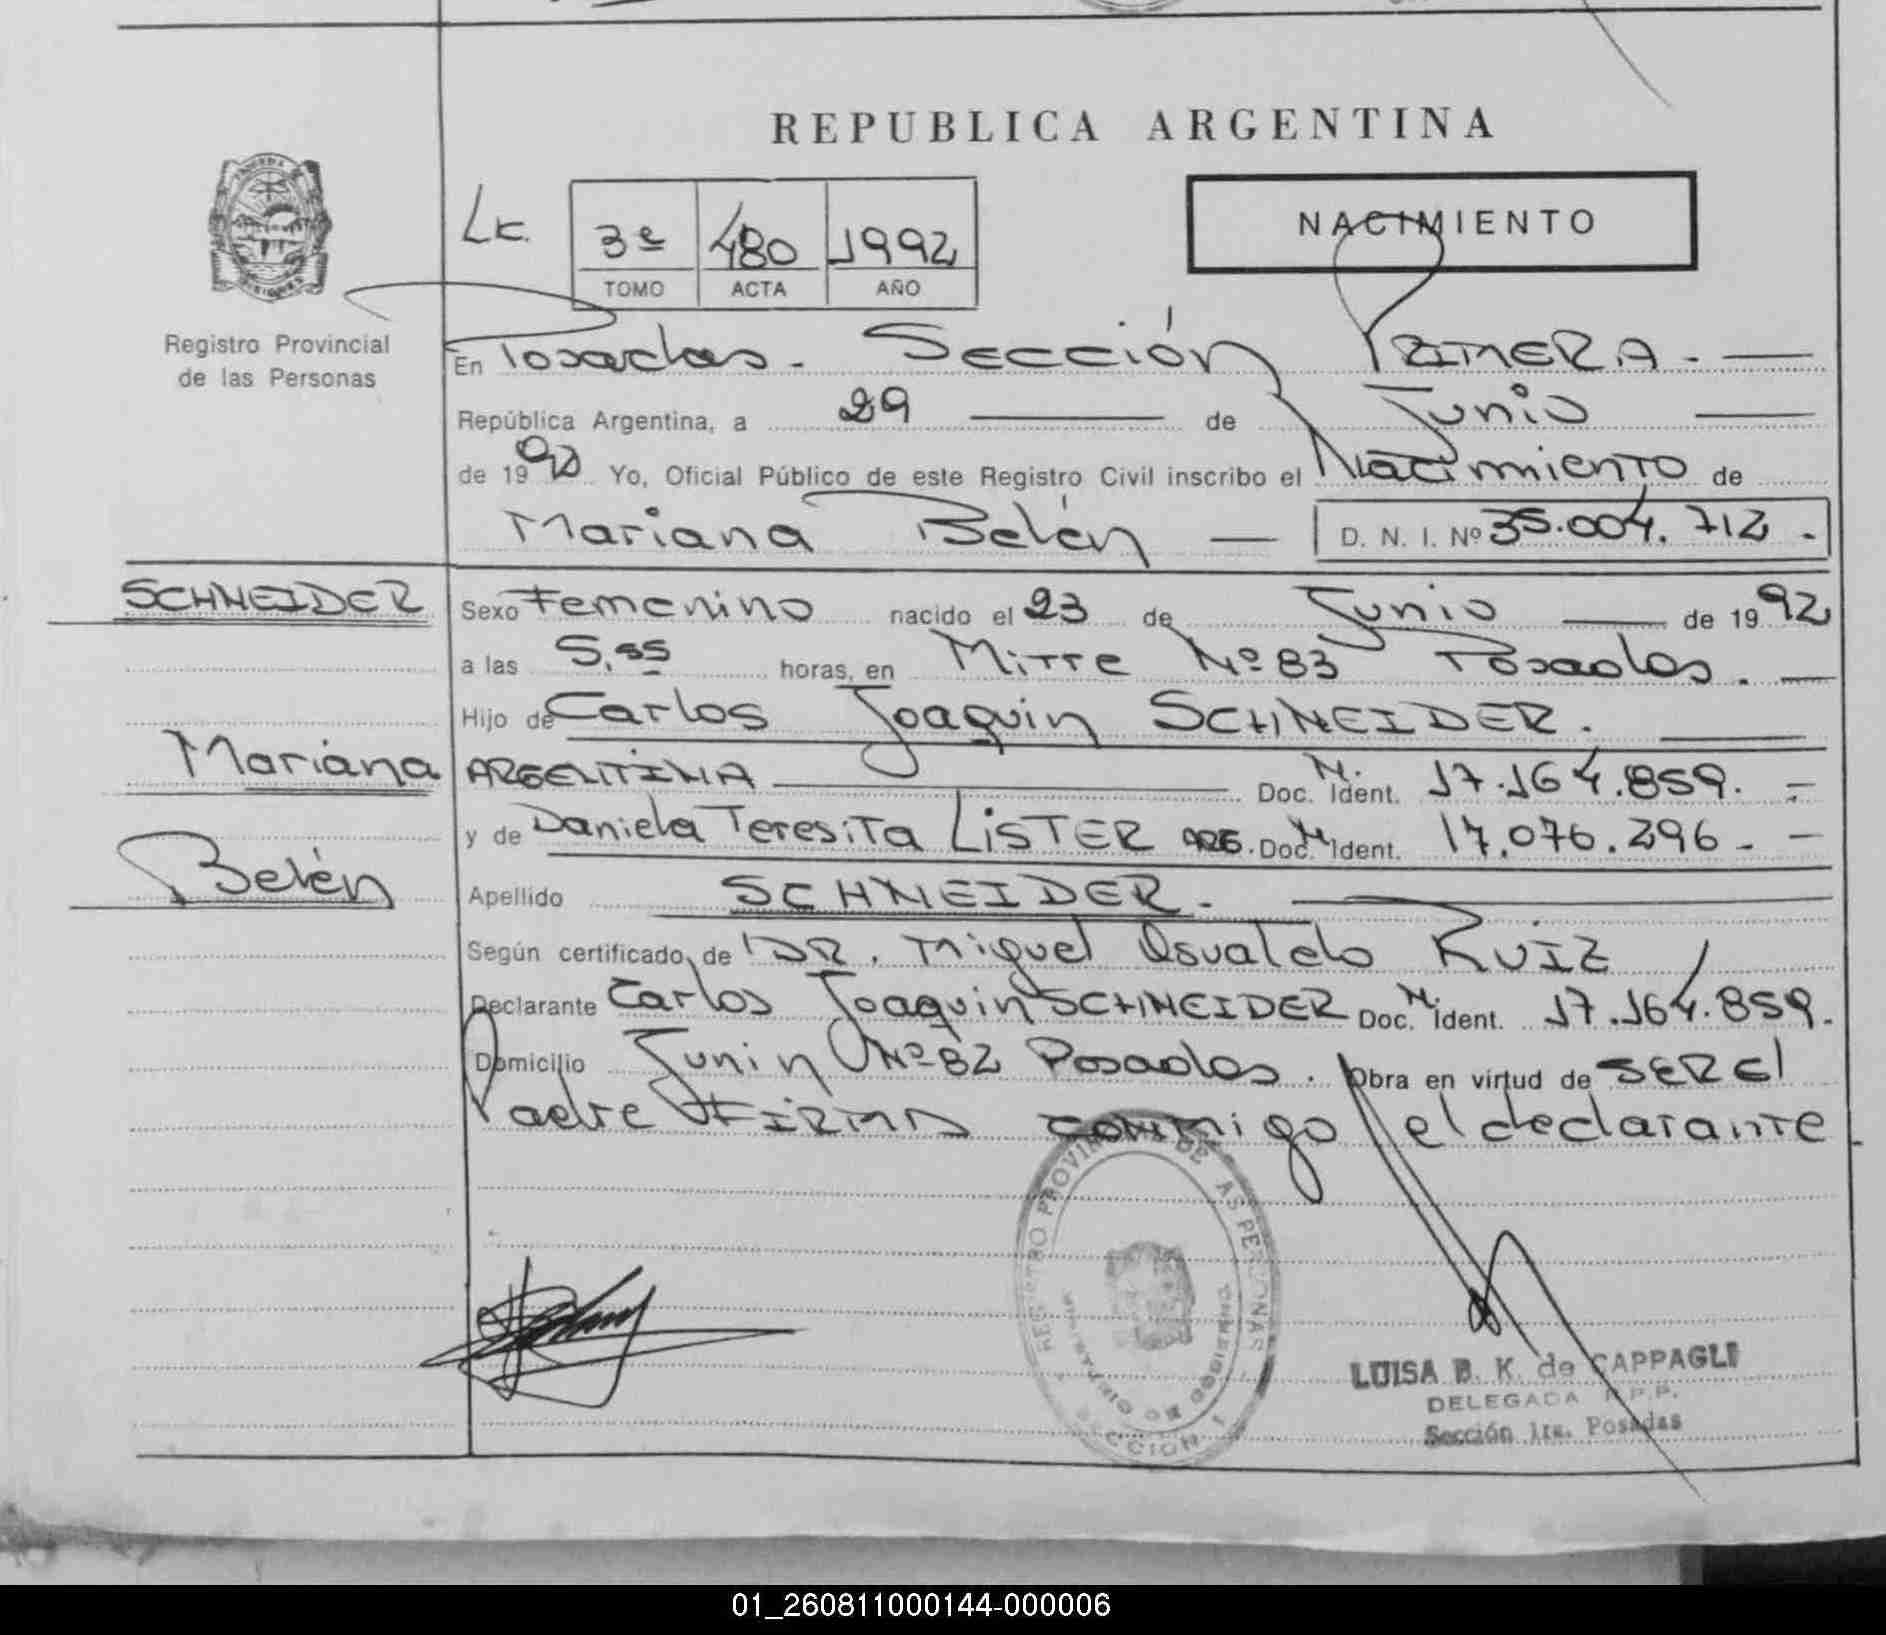 REPUBLICA ARGENTINA
NACIMIENTO
Lk.
3º 480 1992
TOMO ACTA AÑO
Registro Provincial
de las Personas
En Posadas - Sección PRIMERA. -
República Argentina, a 29 de Junio
de 1992 Yo, Oficial Público de este Registro Civil inscribo el Nacimiento de
Mariana Belén — D. N. I. Nº 35.004.712.-
SCHNEIDER
Mariana
Belén
Sexo Femenino nacido el 23 de Junio de 1992
a las 5,55 horas, en Mitre Nº 83 Posadas. —
Hijo de Carlos Joaquin SCHNEIDER.
ARGENTINA Doc. M. Ident. 17.164.859. -
y de Daniela Teresita LISTER ARG. Doc. M. Ident. 17.076.296 -
Apellido SCHNEIDER. -
Según certificado de DR. Miguel Osvaldo RUIZ
Declarante Carlos Joaquin SCHNEIDER Doc. M. Ident. 17.164.859.
Domicilio Junin Nº 82 Posadas. Obra en virtud de SER el
Padre FIRMA conmigo el declarante.
REGISTRO PROVINCIAL DE LAS PERSONAS
SECCION 1
LUISA B. K. de CAPPAGLI
DELEGADA R.P.P.
Sección 1ra. Posadas
01_260811000144-000006